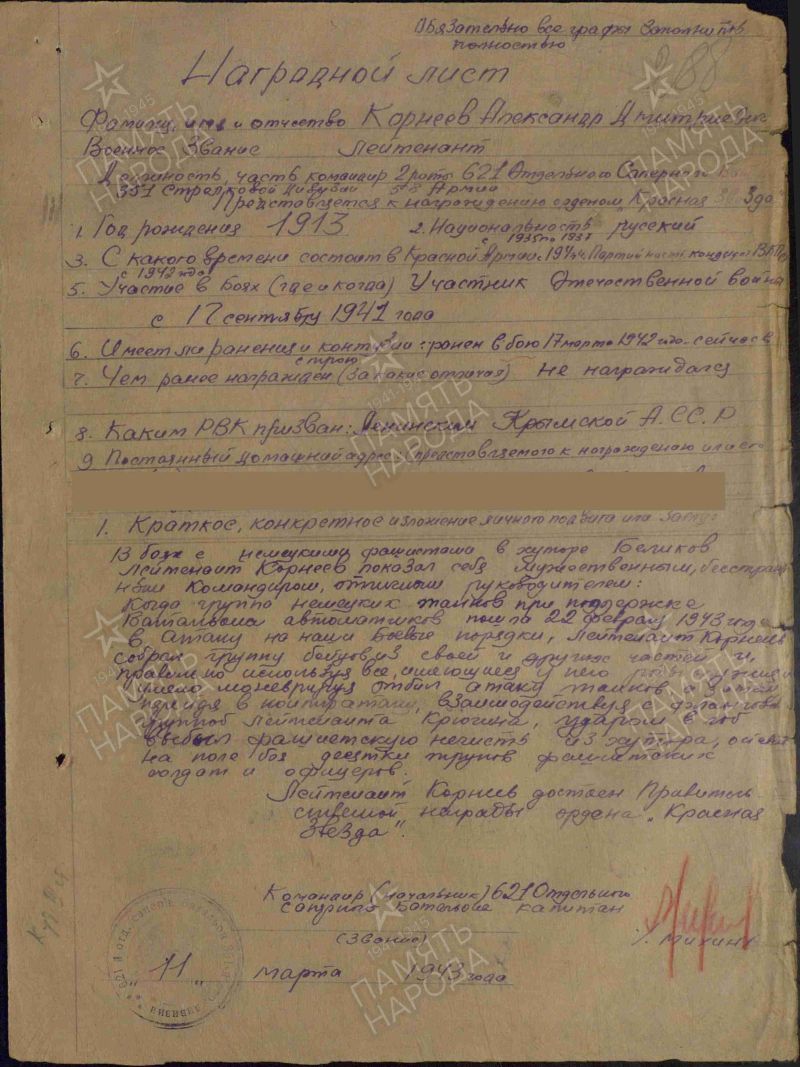 Обязательно все графы заполнить
полностью
88
Наградной лист
Фамилия, имя и отчество Корнеев Александр Дмитриевич
Военное звание Лейтенант
Должность, часть командир 2 роты 621 Отдельного Саперного
351 Стрелковой Дивизии 58 Армии
Представляется к награждению орденом „Красная Звезда
1. Год рождения 1913 2. Национальность русский
с 1935 по 1937
3. С какого времени состоит в Красной Армии с 1941 4. Партийность кандидат ВКП
с 1942 года
5. Участие в боях (где и когда) Участник Отечественной войны
с 17 сентября 1941 года
6. Имеет ли ранения и контузии: ранен в бою 17 марта 1942 года сейчас в
строю
7. Чем ранее награжден (за какие отличия) не награждался
8. Каким РВК призван: Ленинским Крымской А.ССР
9 Постоянный домашний адрес: (представляемого к награждению или его
1. Краткое, конкретное изложение личного подвига или
В боях с немецкими фашистами в хуторе Беликов
Лейтенант Корнеев показал себя мужественным, бесстраш-
ным Командиром, отличным руководителем:
Когда группа немецких танков при поддержке
Батальона автоматчиков пошла 22 февраля 1943 года
в Атаку на наши боевые порядки, Лейтенант Корнеев
собрал группу бойцов из своей и других частей и,
правильно используя все, имеющиеся у него
умело маневрируя отбил атаку танков, а затем
перейдя в контратаку, взаимодействуя с
группой лейтенанта Крюгина, ударом в лоб
выбил фашистскую нечисть из хутора, остав
на поле боя десятки трупов фашистских
солдат и офицеров.
Лейтенант Корнеев достоен Правитель-
ственной награды ордена „Красная
Звезда".
Командир (начальник) 621 Отдельного
саперного Батальона капитан
(Звание)
"11" марта 1943 года
ПАМЯТЬ
НАРОДА
1941-1945